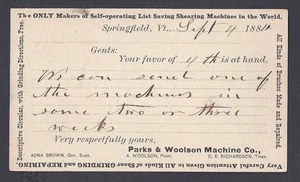 The ONLY Makers of Self-operating List Saving Shearing Machines in the World.
Springfield, Vt., Sept 4 1884
Gents:
Your favor of 4th is at hand.
We can send one of
the machines in
some two or three
weeks
Very respectfully yours,
Parks & Woolson Machine Co.,
ADNA BROWN, Gen. Supt. A. WOOLSON, Prest. C. E. RICHARDSON, Treas.
Descriptive Circular, with Grinding Directions, Free.
Very Careful Attention Given to All Kinds of Shear GRINDING and REPAIRING.
Blades and Brushes Made Given and Repaired.